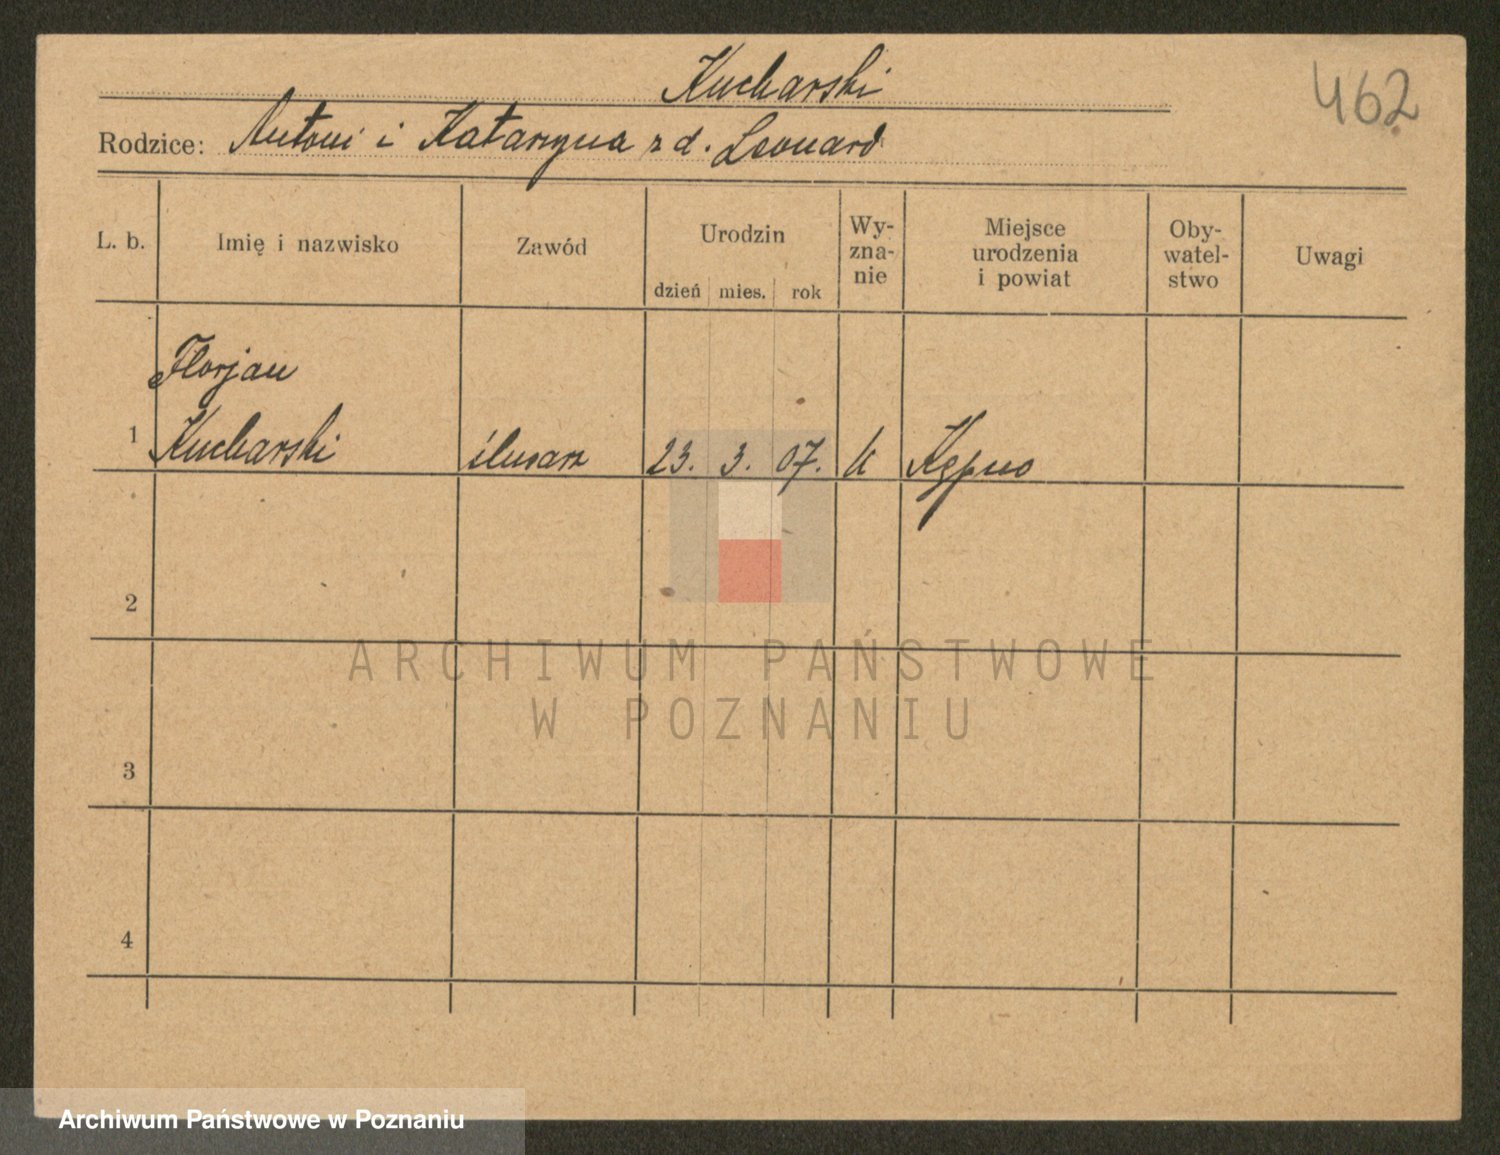 Kucharski
462
Rodzice: Antoni i Katarzyna z d. Leonard
L. b.
Imię i nazwisko
Zawód
Urodzin
dzień mies. rok
Wy-
zna-
nie
Miejsce
urodzenia
i powiat
Oby-
watel-
stwo
Uwagi
Florjan
1 Kucharski ślusarz 23. 3. 07. k Kępno
2
ARCHIWUM PAŃSTWOWE
W POZNANIU
3
4
Archiwum Państwowe w Poznaniu